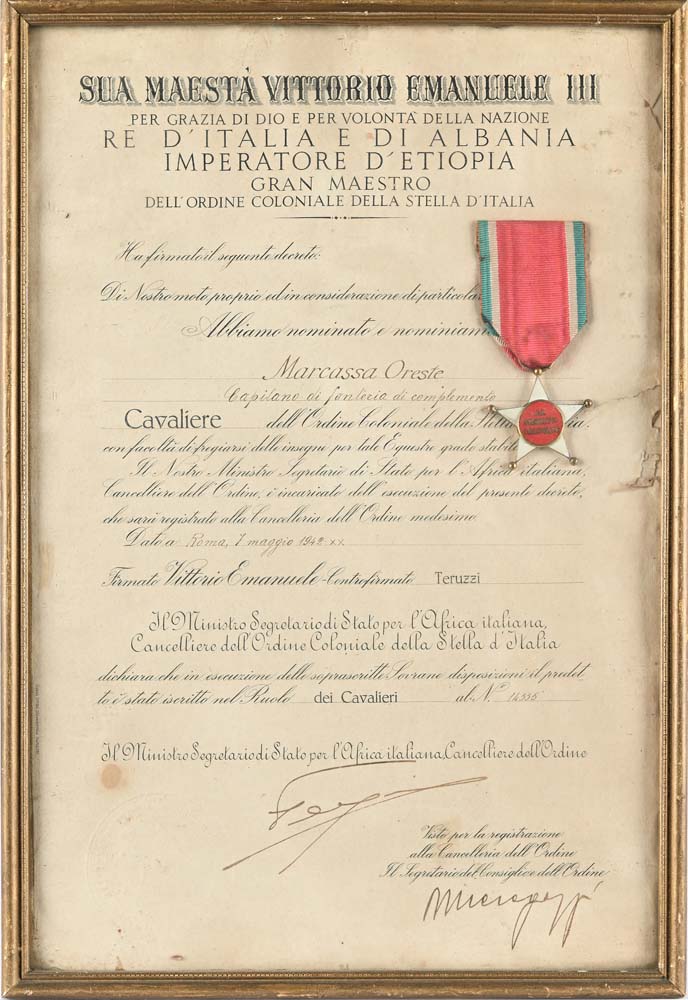 SUA MAESTÀ VITTORIO EMANUELE III
PER GRAZIA DI DIO E PER VOLONTÀ DELLA NAZIONE
RE D'ITALIA E DI ALBANIA
IMPERATORE D'ETIOPIA
GRAN MAESTRO
DELL'ORDINE COLONIALE DELLA STELLA D'ITALIA
Ha firmato il seguente decreto:
Di Nostro moto proprio ed in considerazione di particolar
Abbiamo nominato e nominiamo
Marcassa Oreste
Capitano di fanteria di complemento
Cavaliere dell'Ordine Coloniale della
con facoltà di fregiarsi delle insegne per tale Equestre grado stabil
Il Nostro Ministro Segretario di Stato per l'Africa italiana,
Cancelliere dell'Ordine, è incaricato dell'esecuzione del presente decreto,
che sarà registrato alla Cancelleria dell'Ordine medesimo.
Dato a Roma, 7 maggio 1942 xx.
Firmato Vittorio Emanuele - Controfirmato Teruzzi
Il Ministro Segretario di Stato per l'Africa italiana,
Cancelliere dell'Ordine Coloniale della Stella d'Italia
dichiara che in esecuzione delle soprascritte Sovrane disposizioni il predet-
to è stato iscritto nel Ruolo dei Cavalieri al N.° 14555
Il Ministro Segretario di Stato per l'Africa italiana, Cancelliere dell'Ordine
Visto per la registrazione
alla Cancelleria dell'Ordine
Il Segretario del Consiglio e dell'Ordine